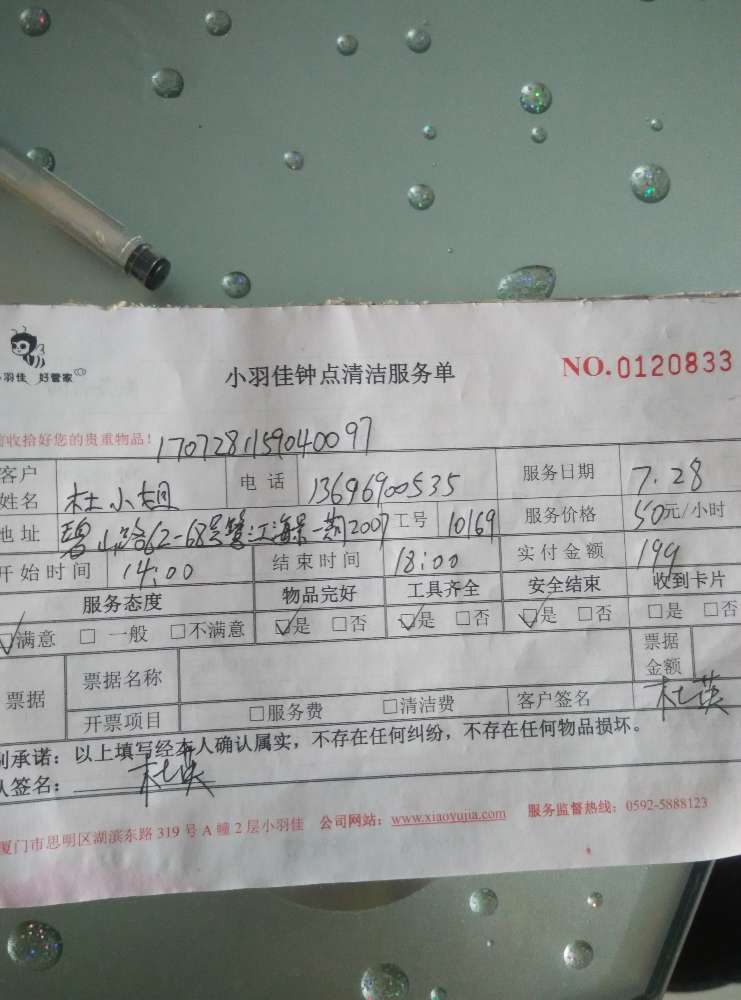 小羽佳 好管家
小羽佳钟点清洁服务单
NO.0120833
收拾好您的贵重物品!
1707281159040097
客户姓名 杜小姐 电话 13696900535 服务日期 7.28
地址 碧山路62-68号鹭江海景一期2007 工号 10169 服务价格 50元/小时
开始时间 14:00 结束时间 18:00 实付金额 199
服务态度 物品完好 工具齐全 安全结束 收到卡片
☑满意 □一般 □不满意 ☑是 □否 ☑是 □否 ☑是 □否 □是 □否
票据 票据名称 票据金额
开票项目 □服务费 □清洁费 客户签名 杜英
承诺:以上填写经本人确认属实,不存在任何纠纷,不存在任何物品损坏。
签名:杜英
厦门市思明区湖滨东路319号A幢2层小羽佳 公司网站:www.xiaoyujia.com 服务监督热线:0592-5888123